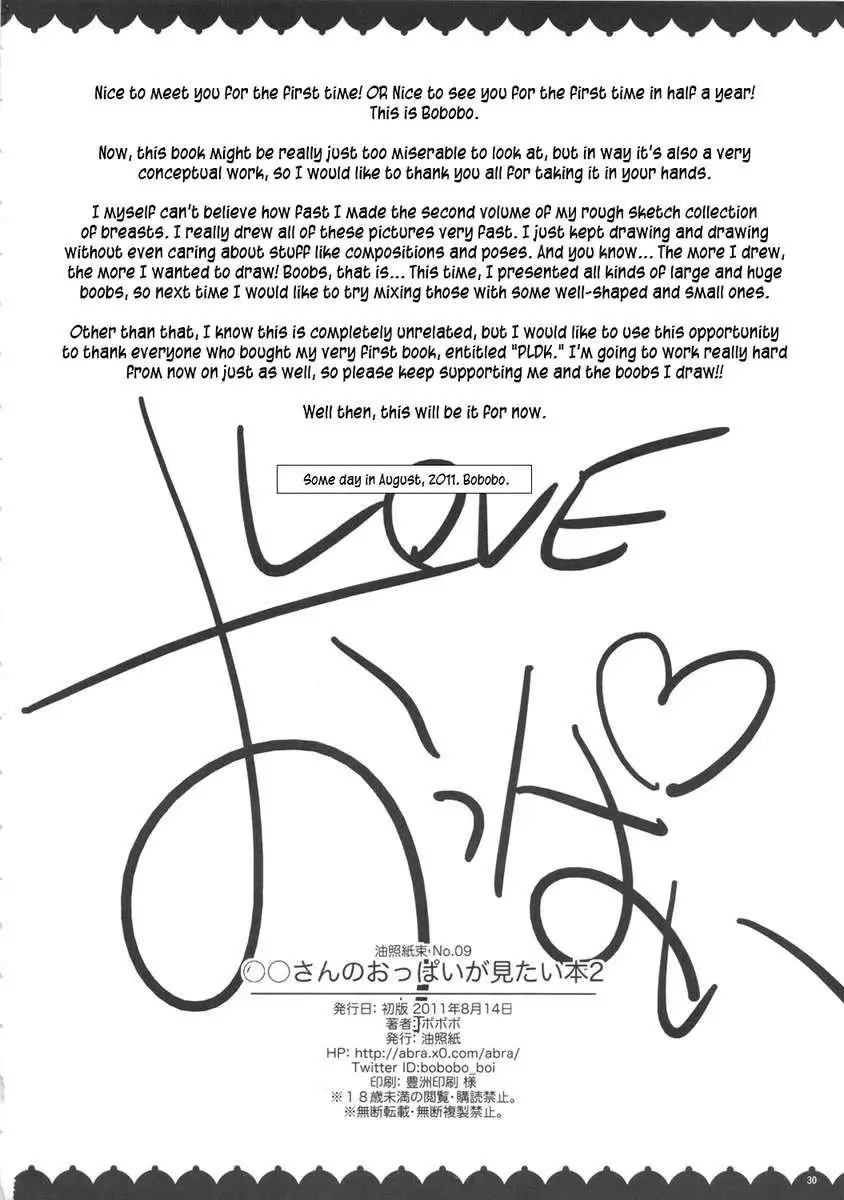 Nice to meet you for the first time! OR Nice to see you for the first time in half a year!
This is Bobobo.
Now, this book might be really just too miserable to look at, but in way it's also a very
conceptual work, so I would like to thank you all for taking it in your hands.
I myself can't believe how fast I made the second volume of my rough sketch collection
of breasts. I really drew all of these pictures very fast. I just kept drawing and drawing
without even caring about stuff like compositions and poses. And you know... The more I drew,
the more I wanted to draw! Boobs, that is... This time, I presented all kinds of large and huge
boobs, so next time I would like to try mixing those with some well-shaped and small ones.
Other than that, I know this is completely unrelated, but I would like to use this opportunity
to thank everyone who bought my very first book, entitled "PLDK." I'm going to work really hard
from now on just as well, so please keep supporting me and the boobs I draw!!
Well then, this will be it for now.
Some day in August, 2011. Bobobo.
LOVE
おっぱい
油照紙束・No.09
○○さんのおっぱいが見たい本2
発行日: 初版 2011年8月14日
著者:ボボボ
発行: 油照紙
HP: http://abra.x0.com/abra/
Twitter ID:bobobo_boi
印刷: 豊洲印刷 様
※18歳未満の閲覧・購読禁止。
※無断転載・無断複製禁止。
30